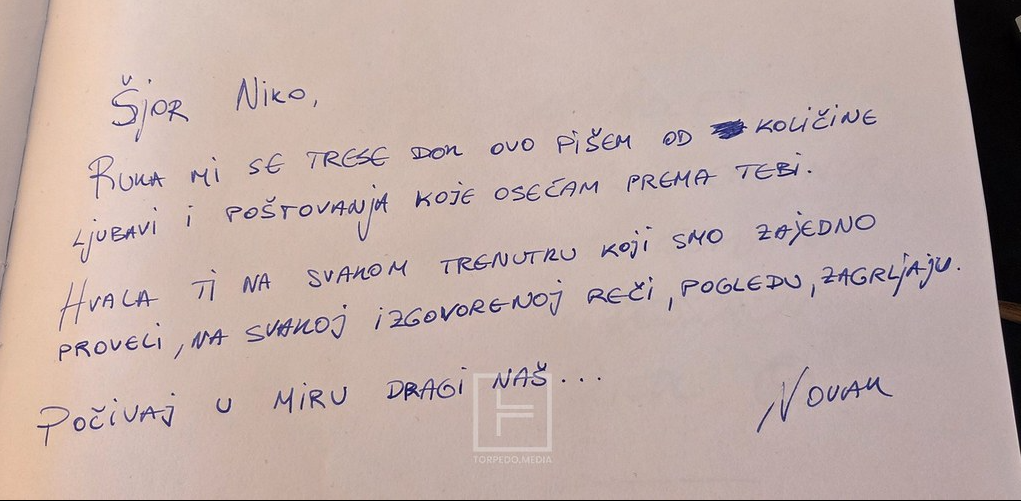 Šjor Niko,
Ruka mi se trese dok ovo pišem od količine
ljubavi i poštovanja koje osećam prema tebi.
Hvala ti na svakom trenutku koji smo zajedno
proveli, na svakoj izgovorenoj reči, pogledu, zagrljaju.
Počivaj u miru dragi naš...
Novak
TORPEDO.MEDIA